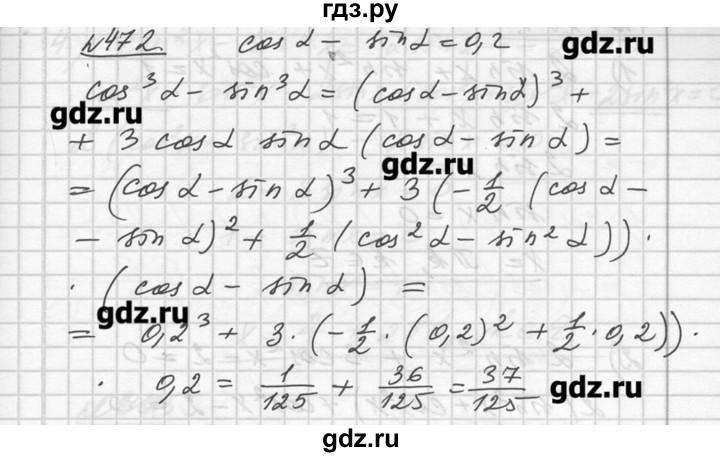 гдз.ру
№472. cos α - sin α = 0,2
gdz.ru
cos³α - sin³α = (cos α - sin α)³ +
gdz.ru
+ 3 cos α sin α (cos α - sin α) =
gdz.ru
= (cos α - sin α)³ + 3 (-1/2 (cos α -
- sin α)² + 1/2 (cos²α - sin²α)) ·
· (cos α - sin α) =
gdz.ru
= 0,2³ + 3 · (-1/2 · (0,2)² + 1/2 · 0,2)) ·
· 0,2 = 1/125 + 36/125 = 37/125
gdz.ru
gdz.ru